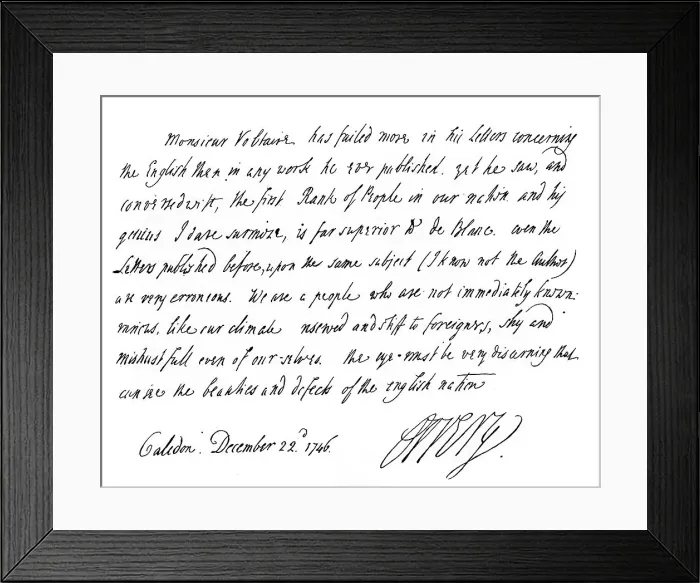 Monsieur Voltaire has failed more in his Letters concerning
the English than in any work he ever published. yet he saw, and
conversed with, the first Rank of People in our nation. and his
genius I dare surmize, is far superior to de Blanc. even the
Letters published before, upon the same subject (I know not the Author)
are very erroneous. We are a people who are not immediately known:
various, like our climate reserved and stiff to foreigners, shy and
mistrustfull even of our selves. the eye must be very discerning that
can see the beauties and defects of the english nation
Caledon. December 22.d 1746.
Orrery.